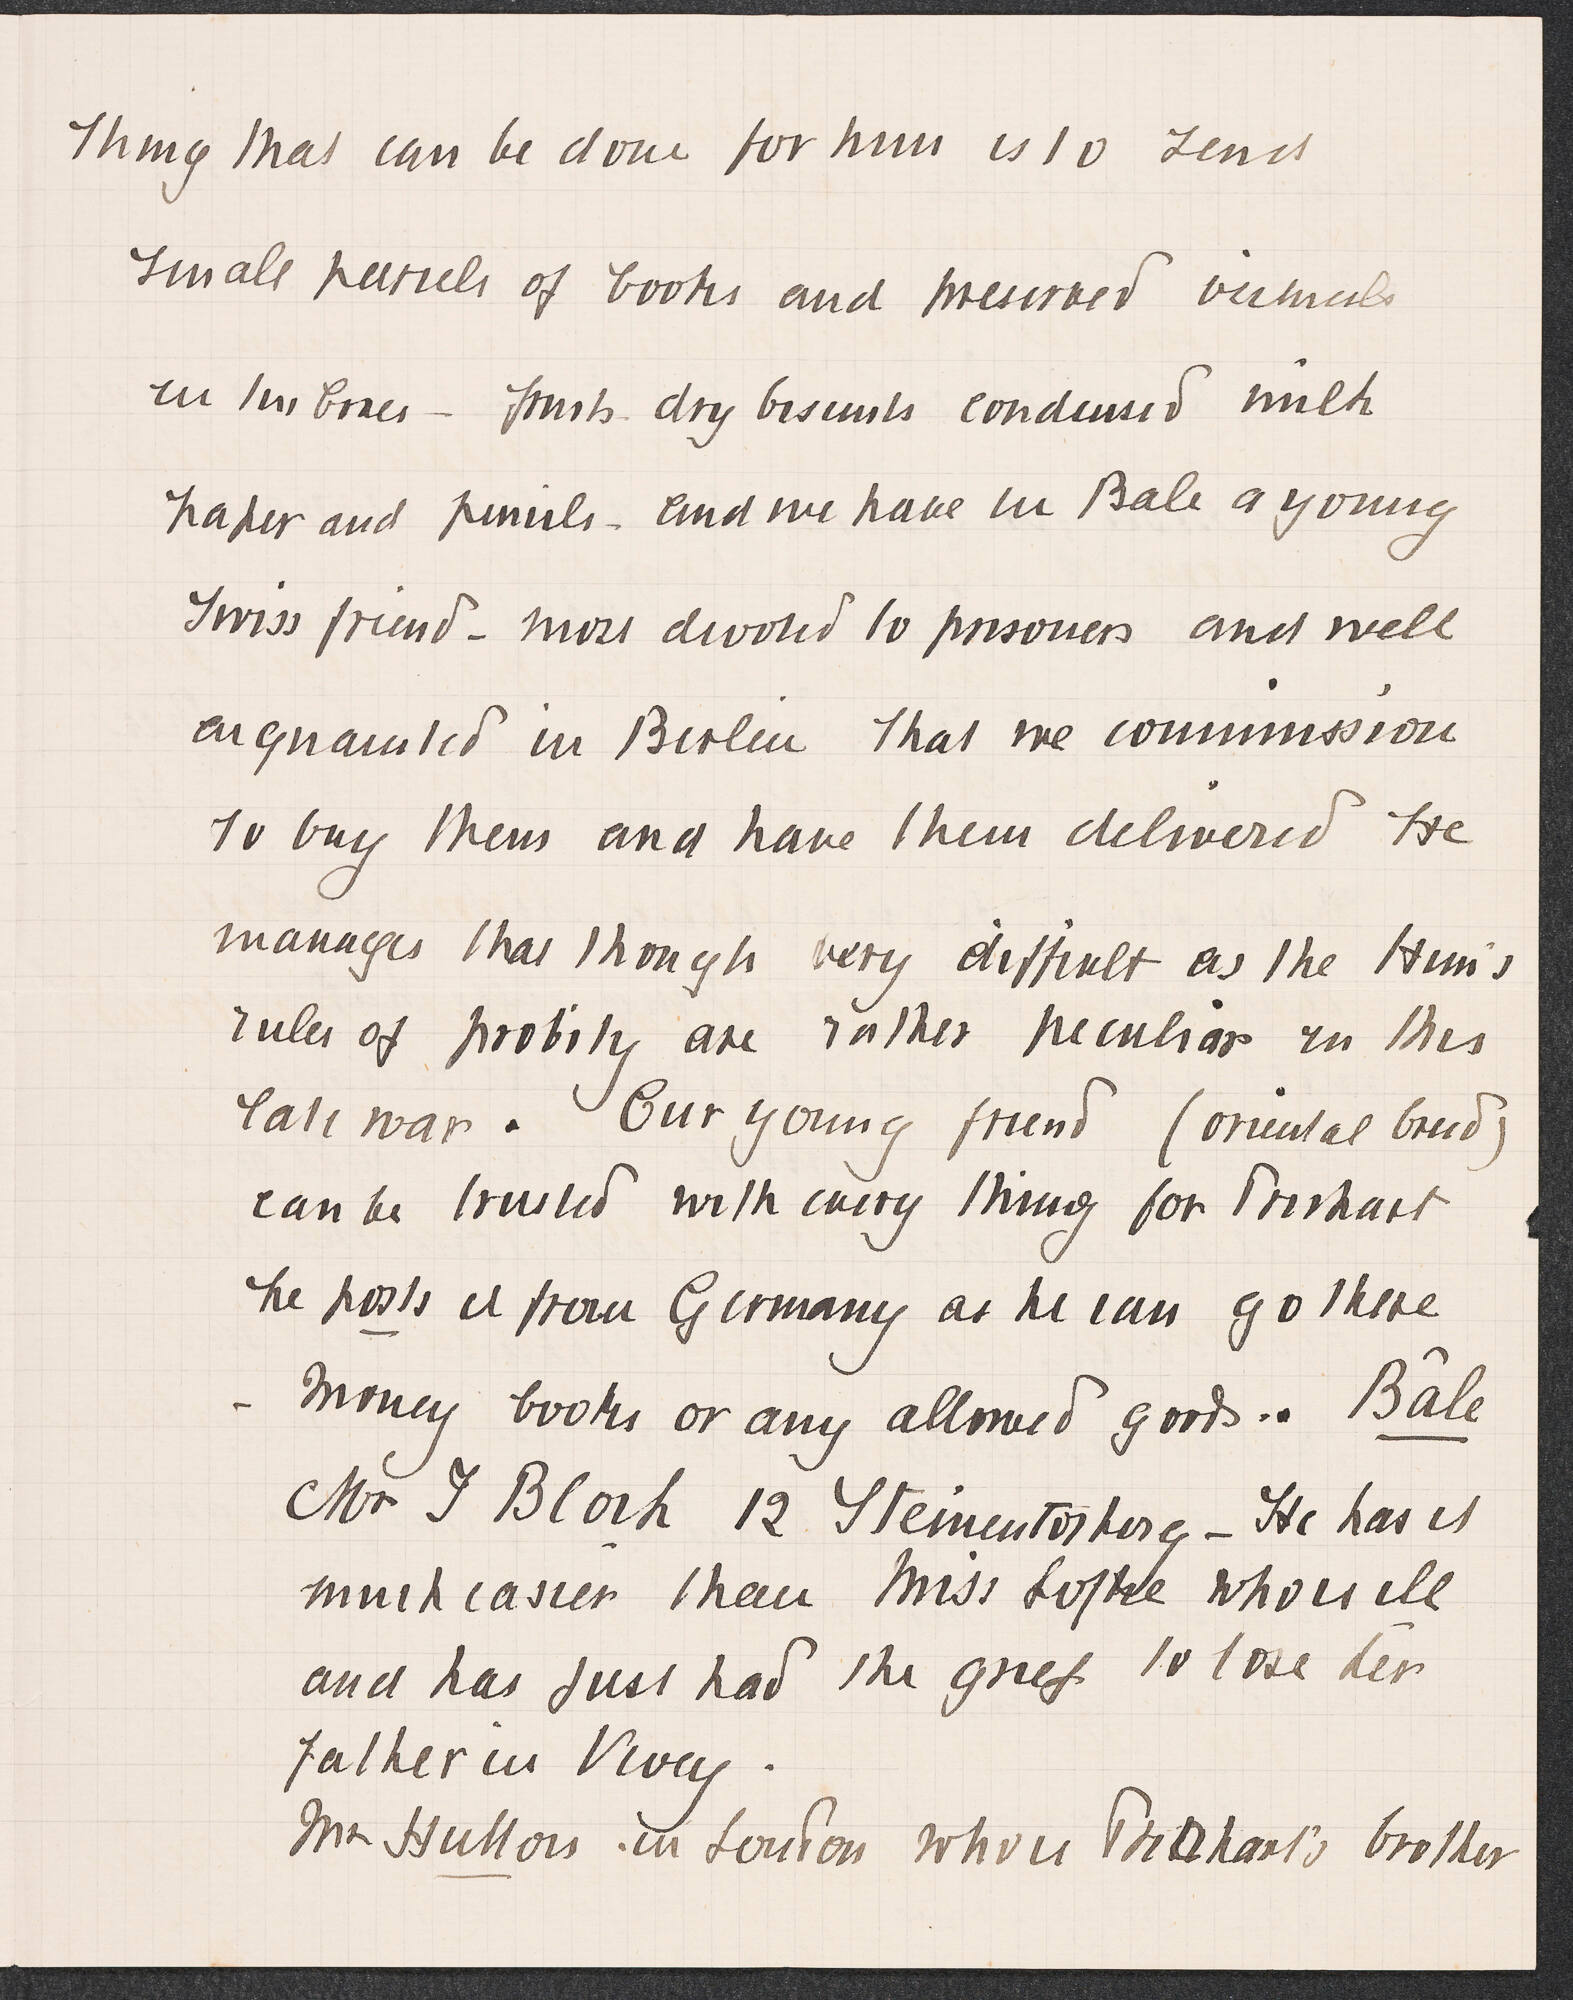 thing that can be done for him is to send
small parcels of books and preserved victuals
in tin boxes – fruits dry biscuits condensed milk
paper and pencils – and we have in Bale a young
Swiss friend – most devoted to prisoners and well
acquainted in Berlin that we commission
to buy them and have them delivered He
manages that though very difficult as the Hun's
rules of probity are rather peculiar in this
late war . Our young friend (oriental breed)
can be trusted with every thing for
he posts it from Germany as he can go there
– Money books or any allowed goods .. Bâle
Mr J Bloch 12 Steinentorberg – He has it
much easier than Miss who is ill
and has just had the grief to lose her
father in Vevey .
Mr Hutton in London who is brother